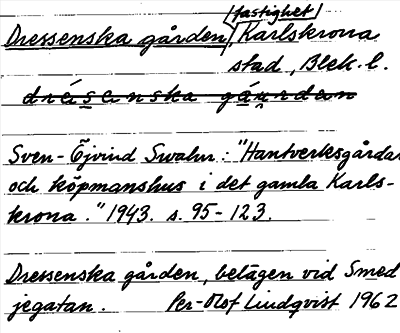 (fastighet)
Dressenska gården, Karlskrona
stad, Blek. l.
drésenska gåurdan
Sven-Öjvind Swahn: "Hantverksgårdar
och köpmanshus i det gamla Karls-
krona." 1943. s. 95-123.
Dressenska gården, belägen vid Smed
jegatan. Per-Olof Lindqvist 1962